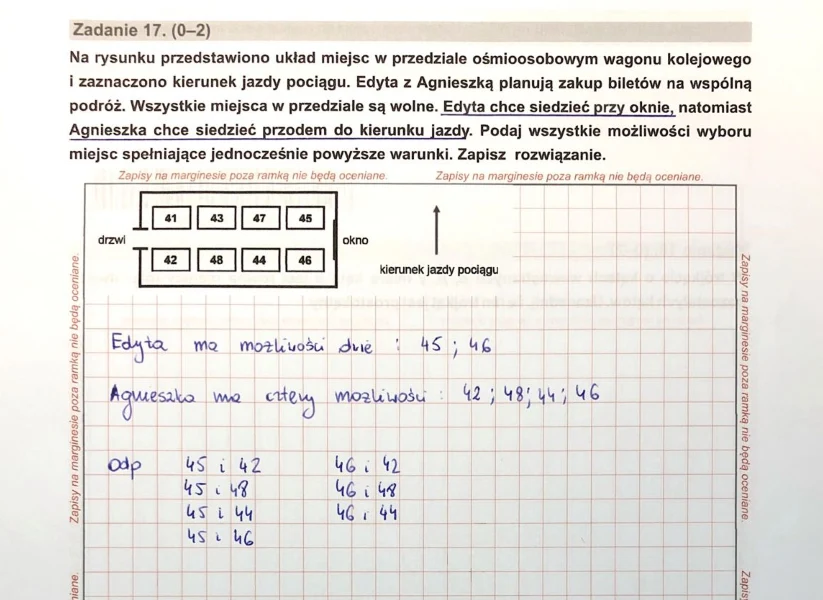 Zadanie 17. (0–2)
Na rysunku przedstawiono układ miejsc w przedziale ośmioosobowym wagonu kolejowego
i zaznaczono kierunek jazdy pociągu. Edyta z Agnieszką planują zakup biletów na wspólną
podróż. Wszystkie miejsca w przedziale są wolne. Edyta chce siedzieć przy oknie, natomiast
Agnieszka chce siedzieć przodem do kierunku jazdy. Podaj wszystkie możliwości wyboru
miejsc spełniające jednocześnie powyższe warunki. Zapisz rozwiązanie.
Zapisy na marginesie poza ramką nie będą oceniane. Zapisy na marginesie poza ramką nie będą oceniane.
41 43 47 45
drzwi okno
42 48 44 46
kierunek jazdy pociągu
Edyta ma możliwości dwie : 45 ; 46
Agnieszka ma cztery możliwości : 42 ; 48 ; 44 ; 46
odp 45 i 42 46 i 42
45 i 48 46 i 48
45 i 44 46 i 44
45 i 46
Zapisy na marginesie poza ramką nie będą oceniane.
Zapisy na marginesie poza ramką nie będą oceniane.
niane.
Zapis